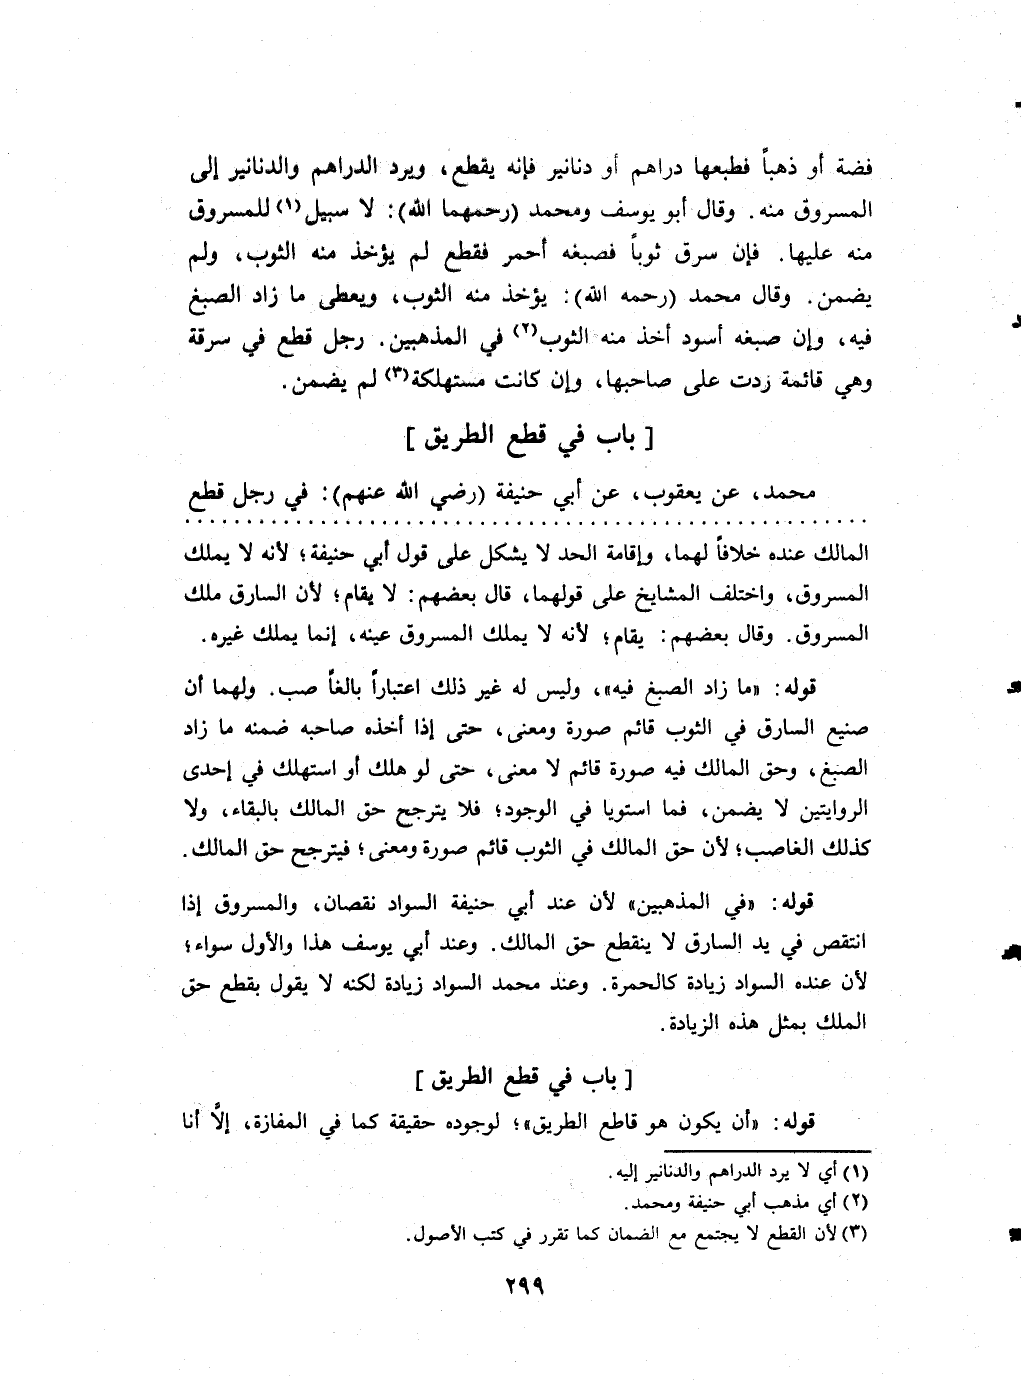 فضة أو ذهباً فطبعها دراهم أو دنانير فإنه يقطع، ويرد الدراهم والدنانير إلى
المسروق منه. وقال أبو يوسف ومحمد (رحمهما الله): لا سبيل(١) للمسروق
منه عليها. فإن سرق ثوباً فصبغه أحمر فقطع لم يؤخذ منه الثوب، ولم
يضمن. وقال محمد (رحمه الله): يؤخذ منه الثوب، ويعطى ما زاد الصبغ
فيه، وإن صبغه أسود أخذ منه الثوب(٢) في المذهبين. رجل قطع في سرقة
وهي قائمة ردت على صاحبها، وإن كانت مستهلكة(٣) لم يضمن.
[ باب في قطع الطريق ]
محمد، عن يعقوب، عن أبي حنيفة (رضي الله عنهم): في رجل قطع
المالك عنده خلافاً لهما، وإقامة الحد لا يشكل على قول أبي حنيفة؛ لأنه لا يملك
المسروق، واختلف المشايخ على قولهما، قال بعضهم: لا يقام؛ لأن السارق ملك
المسروق. وقال بعضهم: يقام؛ لأنه لا يملك المسروق عينه، إنما يملك غيره.
قوله: «ما زاد الصبغ فيه»، وليس له غير ذلك اعتباراً بالغاً صب. ولهما أن
صنيع السارق في الثوب قائم صورة ومعنى، حتى إذا أخذه صاحبه ضمنه ما زاد
الصبغ، وحق المالك فيه صورة قائم لا معنى، حتى لو هلك أو استهلك في إحدى
الروايتين لا يضمن، فما استويا في الوجود؛ فلا يترجح حق المالك بالبقاء، ولا
كذلك الغاصب؛ لأن حق المالك في الثوب قائم صورة ومعنى؛ فيترجح حق المالك.
قوله: «في المذهبين» لأن عند أبي حنيفة السواد نقصان، والمسروق إذا
انتقص في يد السارق لا ينقطع حق المالك. وعند أبي يوسف هذا والأول سواء؛
لأن عنده السواد زيادة كالحمرة. وعند محمد السواد زيادة لكنه لا يقول بقطع حق
الملك بمثل هذه الزيادة.
[ باب في قطع الطريق ]
قوله: «أن يكون هو قاطع الطريق»؛ لوجوده حقيقة كما في المفازة، إلاَّ أنا
(١) أي لا يرد الدراهم والدنانير إليه.
(٢) أي مذهب أبي حنيفة ومحمد.
(٣) لأن القطع لا يجتمع مع الضمان كما تقرر في كتب الأصول.
٢٩٩